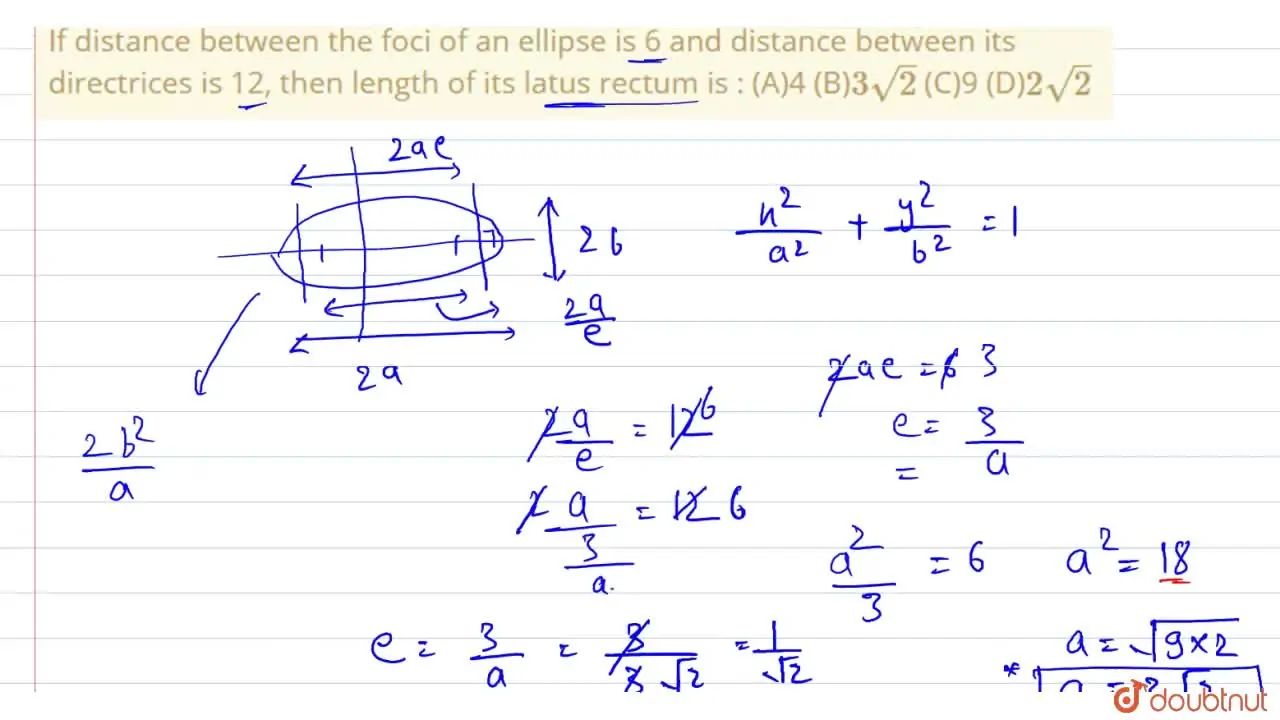 If distance between the foci of an ellipse is 6 and distance between its
directrices is 12, then length of its latus rectum is : (A)4 (B)3√2 (C)9 (D)2√2
2ae
x²/a² + y²/b² = 1
2b
2a/e
2a
2ae = 6 3
2a/e = 12 6
e = 3/a
=
2b²/a
2 a/(3/a) = 12 6
a²/3 = 6 a² = 18
e = 3/a = 3/3√2 = 1/√2
a = √9×2
*
doubtnut